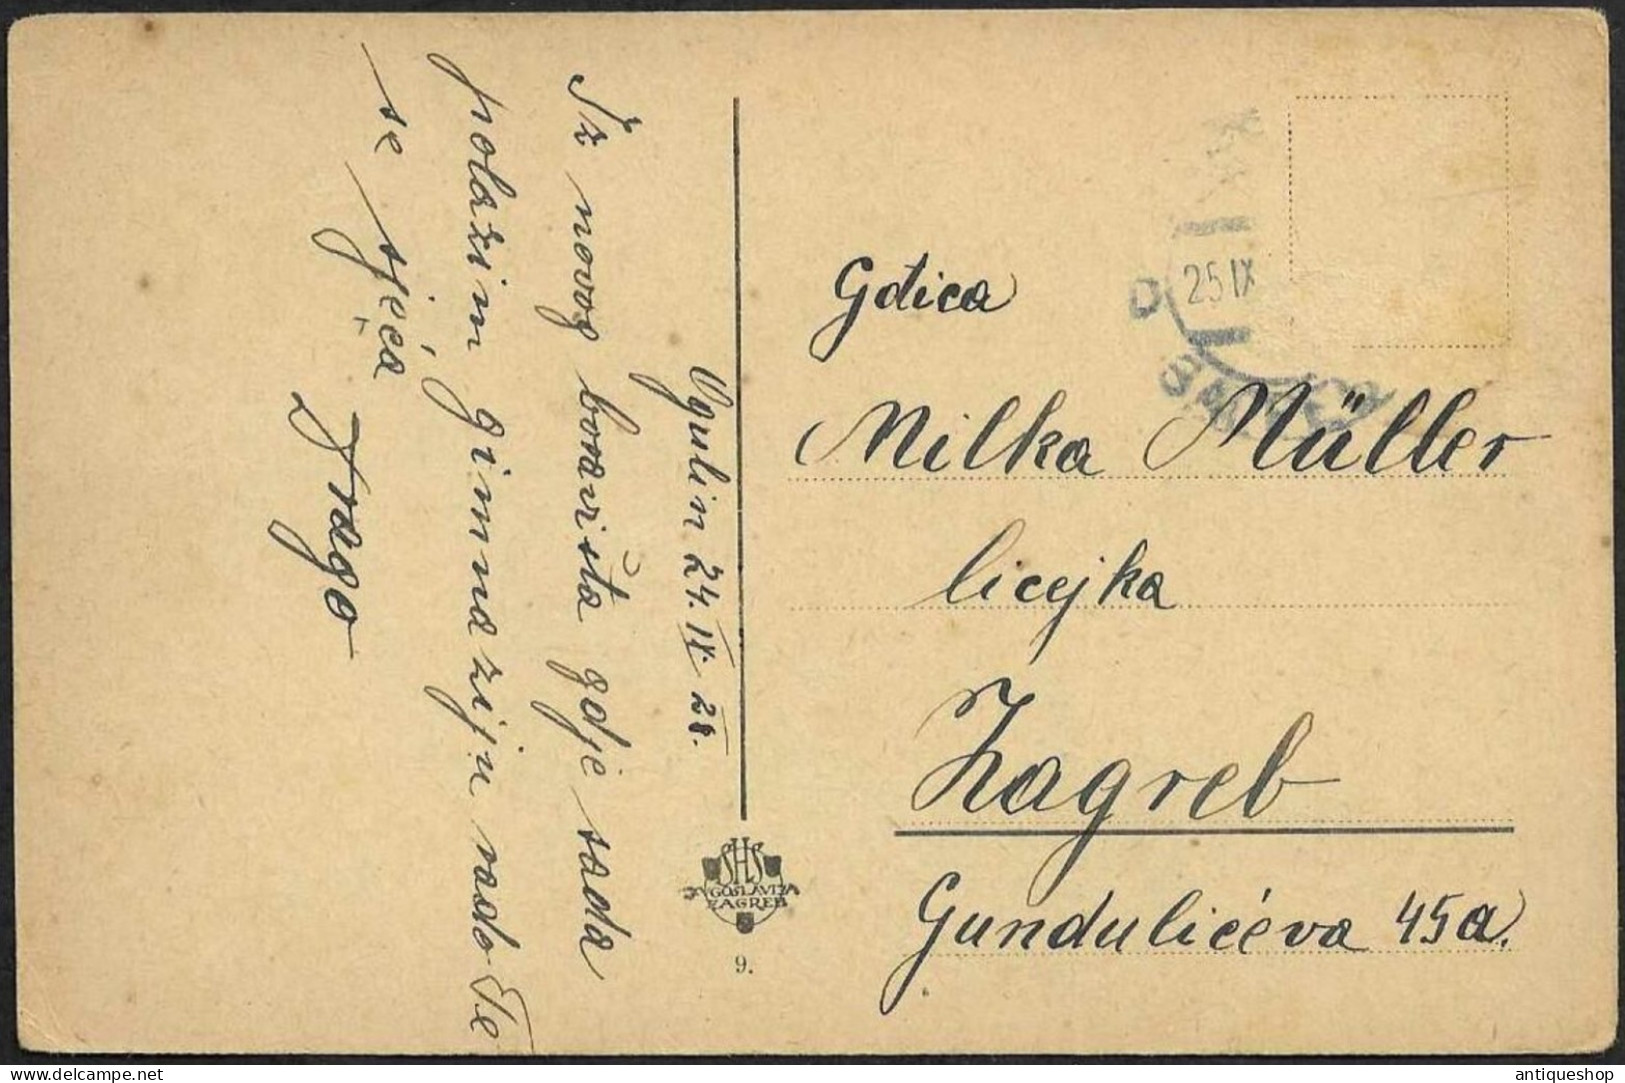 Ogulin 24.IX.28.
Iz novog boravišta gdje sada
polazim gimnaziju rado Te
se sjeća
Drago
SHS
JUGOSLAVIJA
ZAGREB
9.
25 IX
Gđica
Milka Müller
licejka
Zagreb
Gundulićeva 45a.
antiqueshop